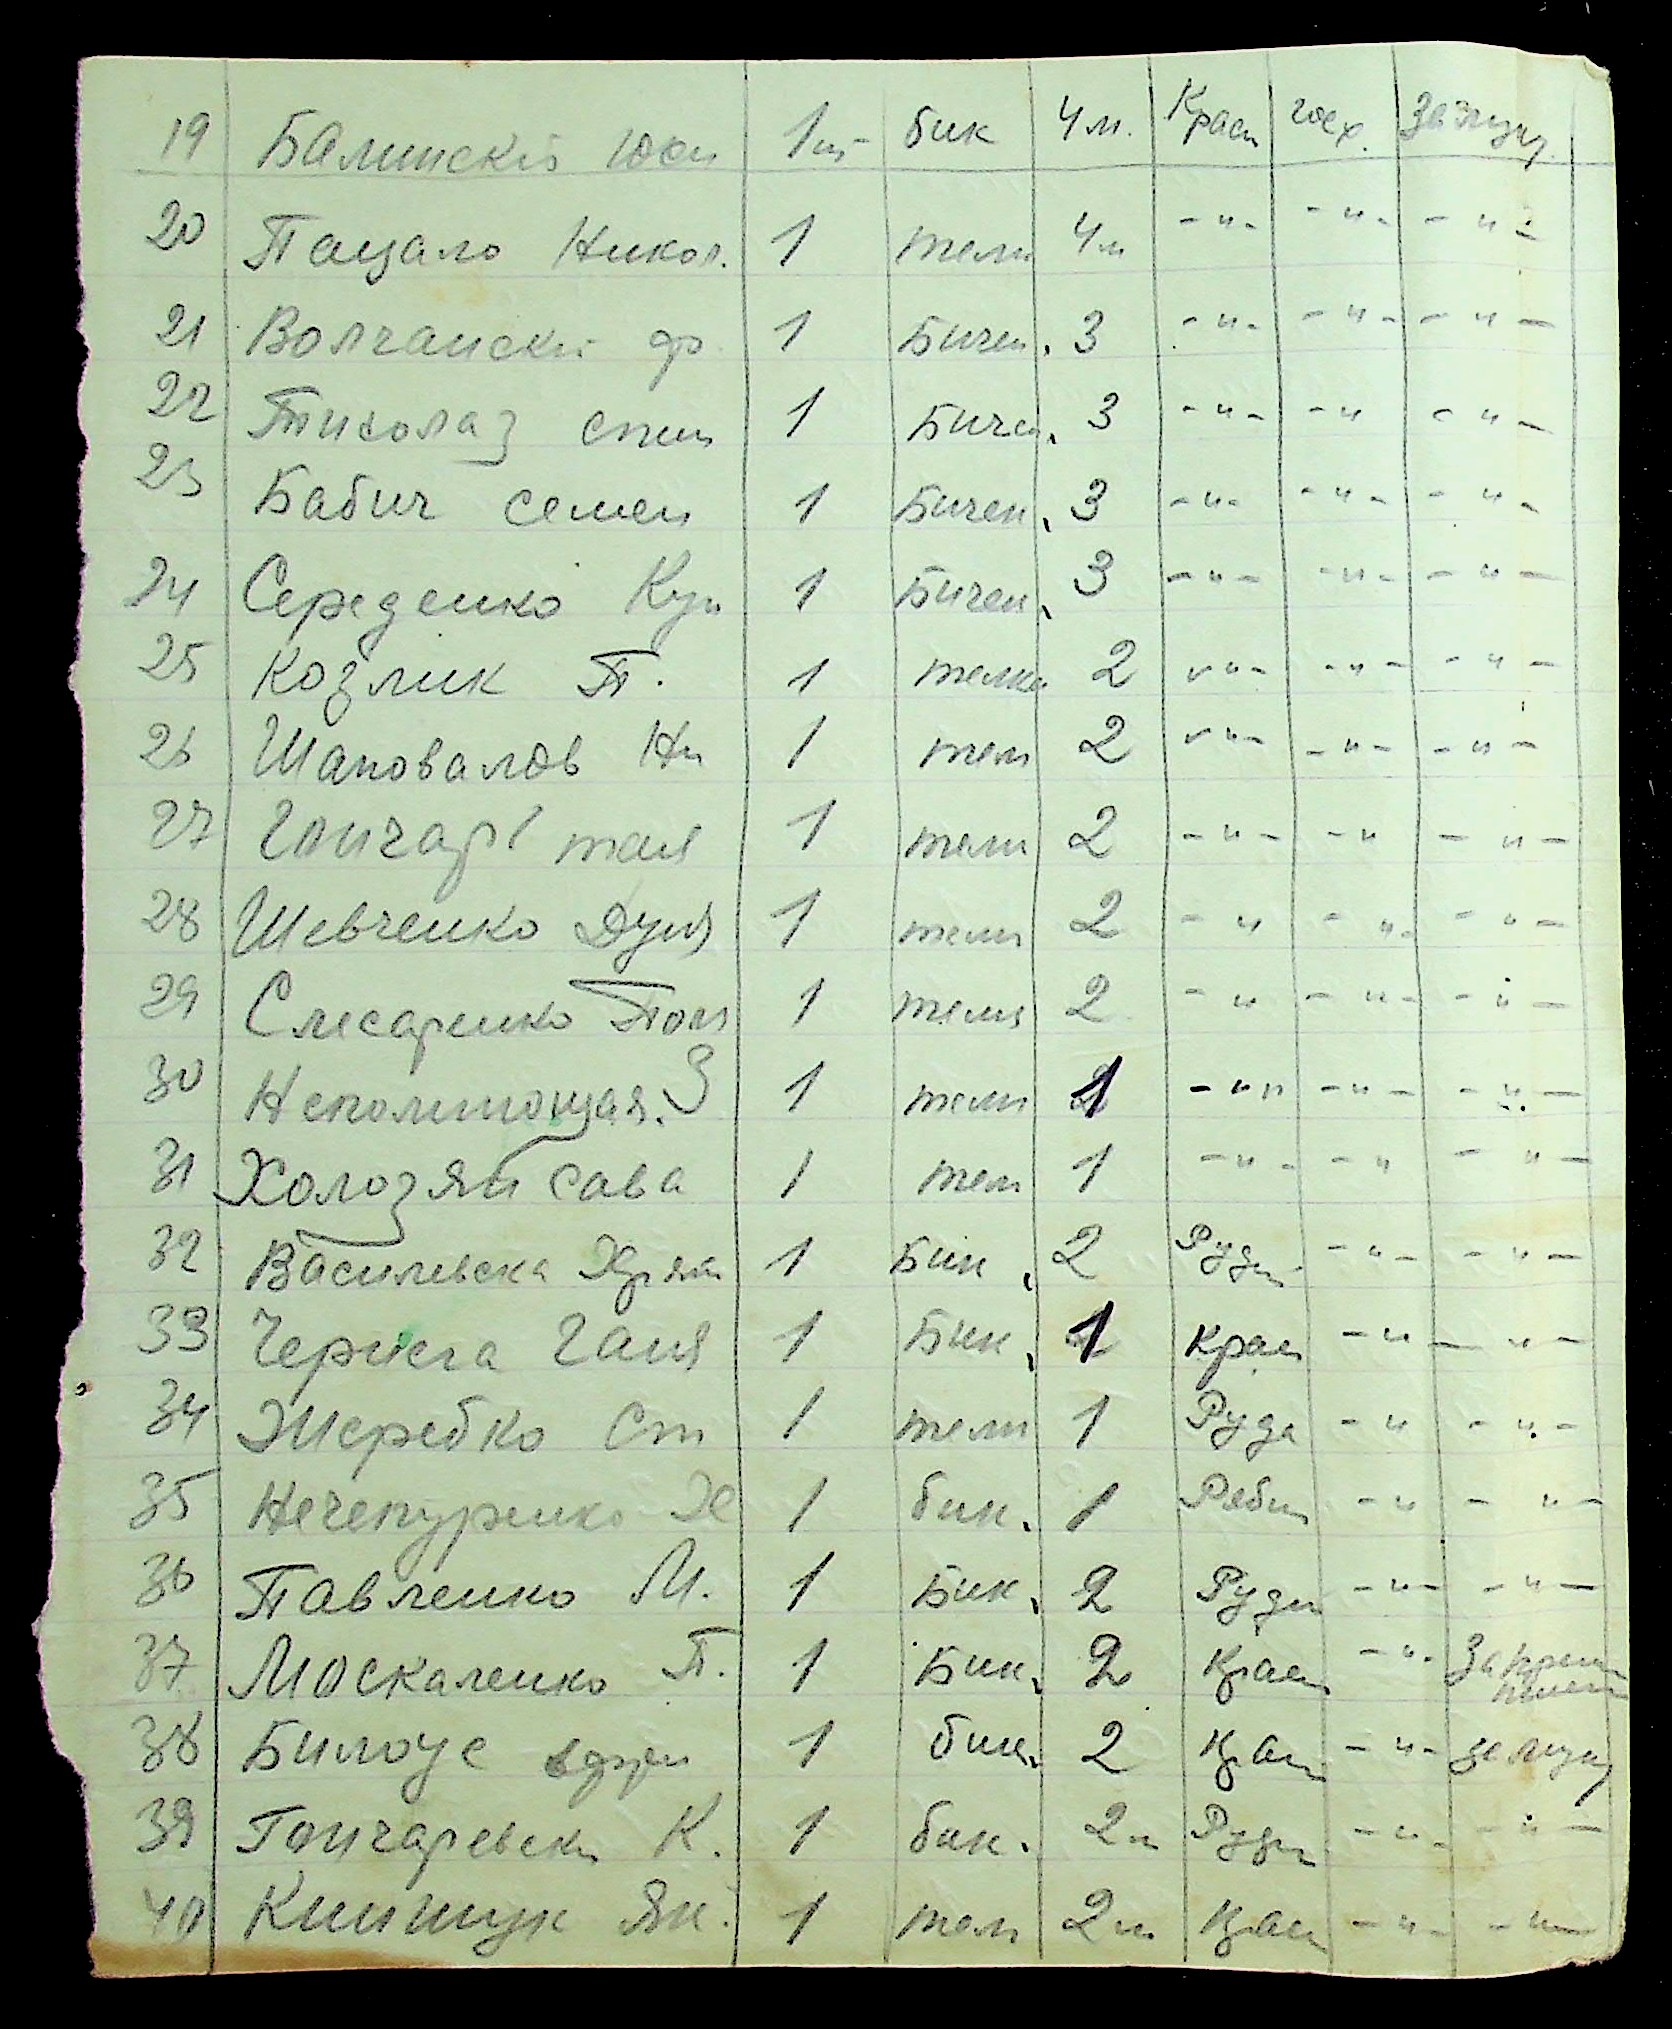 19 Балинскій Юхи 1 шт- бик 4 м. Красн гос х. За лизун.
20 Пацало Никол. 1 тели 4 м -"- -"- -"-
21 Волчански ф 1 Бичен. 3 -"- -"- -"-
22 Тихолаз степ 1 Бичен. 3 -"- -"- -"-
23 Бабич семен 1 Бичен. 3 -"- -"- -"-
24 Середенко Кузь 1 Бичен. 3 -"- -"- -"-
25 Козлик П. 1 телка 2 -"- -"- -"-
26 Шаповалов Ни 1 тел 2 -"- -"- -"-
27 Гончар таня 1 тели 2 -"- -" -"-
28 Шевченко Дуня 1 тели 2 -" -"- -"-
29 Слесаренко Пол 1 теля 2 -" -"- -"-
30 Неполитющая. З 1 тели 1 -"" -"- -"-
31 Холозяй сава 1 тели 1 -"- -" -"-
32 Василевска 1 Бик. 2 Руди -"- -"-
33 Чернега Ганя 1 Бик. 1 Крас -"- -"-
34 Жеребко Ст 1 тели 1 Руда -" -"-
35 Нечепуренко Х 1 бик. 1 Ряби -" -"-
36 Павленко М. 1 Бик. 2 Руди -"- -"-
37 Москаленко П. 1 Бик. 2 Крас -"-
38 Билоус 1 бик. 2 Крас -"-
39 Гончаревски К. 1 бик. 2 м Руди -"- -"-
40 Книшук Як. 1 тел 2 м Крас -"- -"-